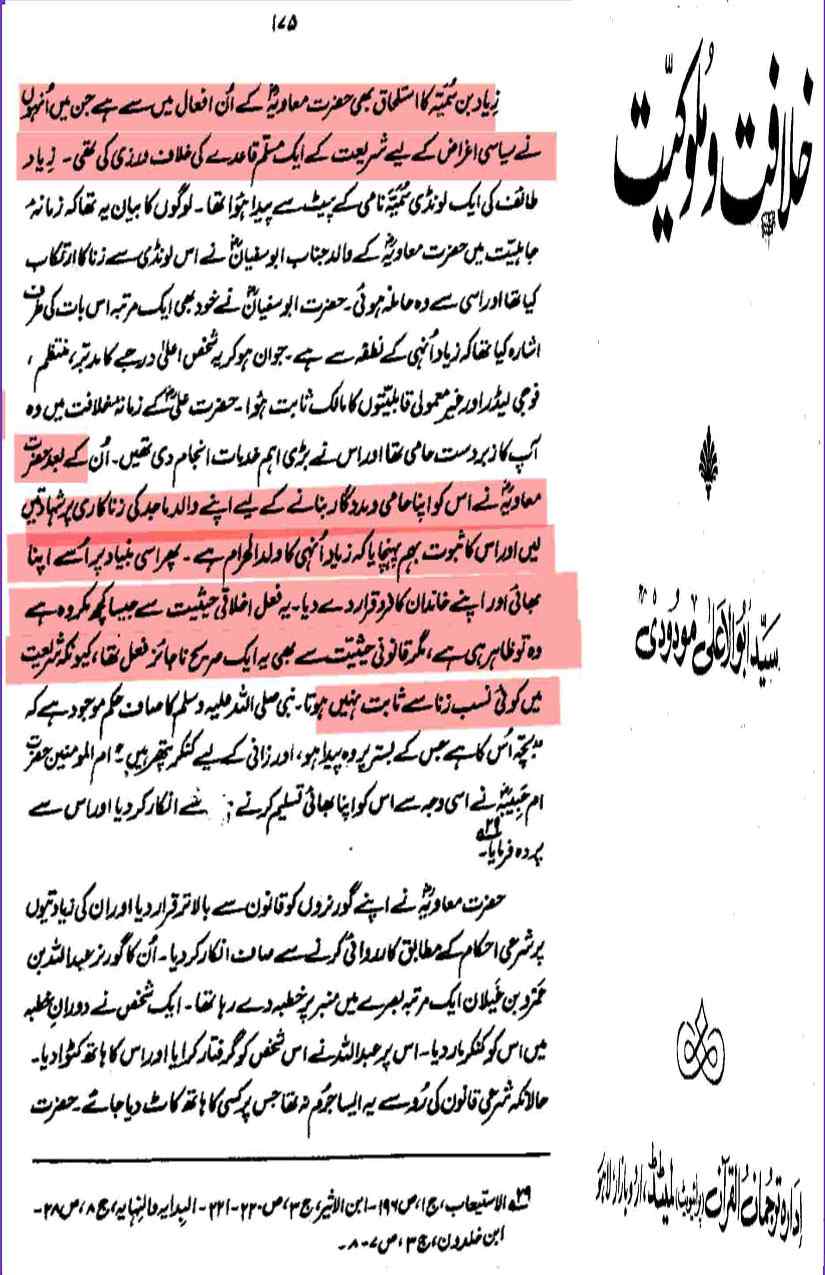 ۱۷۵
زیاد بن سُمَیّہ کا استلحاق بھی حضرت معاویہؓ کے اُن افعال میں سے ہے جن میں اُنہوں
نے سیاسی اغراض کے لیے شریعت کے ایک مسلّم قاعدے کی خلاف ورزی کی تھی۔ زیاد
طائف کی ایک لونڈی سُمَیّہ نامی کے پیٹ سے پیدا ہُوا تھا۔ لوگوں کا بیان یہ تھا کہ زمانۂ
جاہلیت میں حضرت معاویہؓ کے والد جناب ابو سفیانؓ نے اس لونڈی سے زنا کا ارتکاب
کیا تھا اور اسی سے وہ حاملہ ہوئی۔ حضرت ابو سفیانؓ نے خود بھی ایک مرتبہ اس بات کی طرف
اشارہ کیا تھا کہ زیاد اُنہی کے نطفہ سے ہے۔ جوان ہو کر یہ شخص اعلیٰ درجے کا مدبّر، منتظم،
فوجی لیڈر اور غیر معمولی قابلیّتوں کا مالک ثابت ہُوا۔ حضرت علیؓ کے زمانۂ خلافت میں وہ
آپ کا زبردست حامی تھا اور اس نے بڑی اہم خدمات انجام دی تھیں۔ اُن کے بعد حضرت
معاویہؓ نے اس کو اپنا حامی و مددگار بنانے کے لیے اپنے والد ماجد کی زنا کاری پر شہادتیں
لیں اور اس کا ثبوت بہم پہنچایا کہ زیاد اُنہی کا ولد الحرام ہے۔ پھر اسی بنیاد پر اُسے اپنا
بھائی اور اپنے خاندان کا فرد قرار دے دیا۔ یہ فعل اخلاقی حیثیت سے جیسا کچھ مکروہ ہے
وہ تو ظاہر ہی ہے، مگر قانونی حیثیت سے بھی یہ ایک صریح ناجائز فعل تھا، کیونکہ شریعت
میں کوئی نسب زنا سے ثابت نہیں ہوتا۔ نبی صلی اللہ علیہ وسلم کا صاف حکم موجود ہے کہ
”بچہ اُس کا ہے جس کے بستر پر وہ پیدا ہو، اور زانی کے لیے کنکر پتھر ہیں۔“ ام المومنین حضرت
ام حبیبہؓ نے اسی وجہ سے اس کو اپنا بھائی تسلیم کرنے سے انکار کر دیا اور اس سے
پردہ فرمایا۔۲۹
حضرت معاویہؓ نے اپنے گورنروں کو قانون سے بالاتر قرار دیا اور ان کی زیادتیوں
پر شرعی احکام کے مطابق کارروائی کرنے سے صاف انکار کر دیا۔ اُن کا گورنر عبداللہ بن
عمرو بن غیلان ایک مرتبہ بصرے میں منبر پر خطبہ دے رہا تھا۔ ایک شخص نے دورانِ خطبہ
میں اس کو کنکر مار دیا۔ اس پر عبداللہ نے اس شخص کو گرفتار کرایا اور اس کا ہاتھ کٹوا دیا۔
حالانکہ شرعی قانون کی رُو سے یہ ایسا جرم نہ تھا جس پر کسی کا ہاتھ کاٹ دیا جائے۔ حضرت
۲۹ الاستیعاب، ج ۱، ص ۱۹۶۔ ابن الاثیر، ج ۳، ص ۲۲۰-۲۲۱۔ البدایہ والنہایہ، ج ۸، ص ۲۸۔
ابن خلدون، ج ۳، ص ۷-۸۔
خلافت و ملوکیّت
سیّد ابوالاعلیٰ مودودی
ادارہ ترجمان القرآن (پرائیویٹ) لمیٹڈ، اردو بازار لاہور